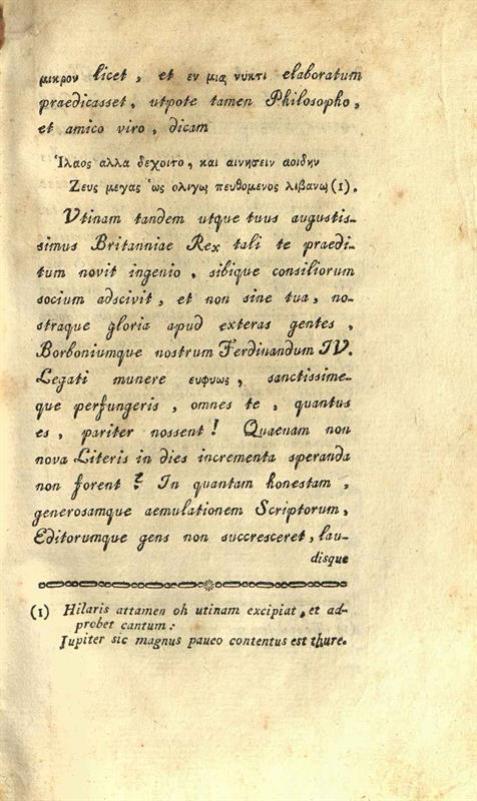 μικρον licet , et εν μια νυκτι elaboratum
praedicasset, utpote tamen Philosopho,
et amico viro , dicam
Ἱλαος αλλα δεχοιτο, και αινησειν αοιδην
Ζευς μεγας ὡς ολιγῳ πευθομενος λιβανῳ (1).
Vtinam tandem utque tuus augustis-
simus Britanniae Rex tali te praedi-
tum novit ingenio , sibique consiliorum
socium adscivit , et non sine tua , no-
straque gloria apud exteras gentes ,
Borboniumque nostrum Ferdinandum IV.
Legati munere ευφυως , sanctissime-
que perfungeris , omnes te , quantus
es , pariter nossent ! Quaenam non
nova Literis in dies incrementa speranda
non forent ? In quantam honestam ,
generosamque aemulationem Scriptorum,
Editorumque gens non succresceret, lau-
disque
(1) Hilaris attamen oh utinam excipiat, et ad-
probet cantum:
Jupiter sic magnus pauco contentus est thure.